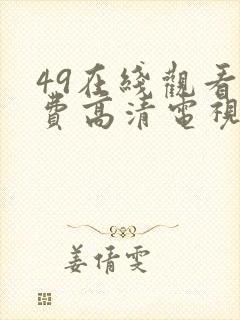 49在綫觀看
費高清電視
姜倩雯